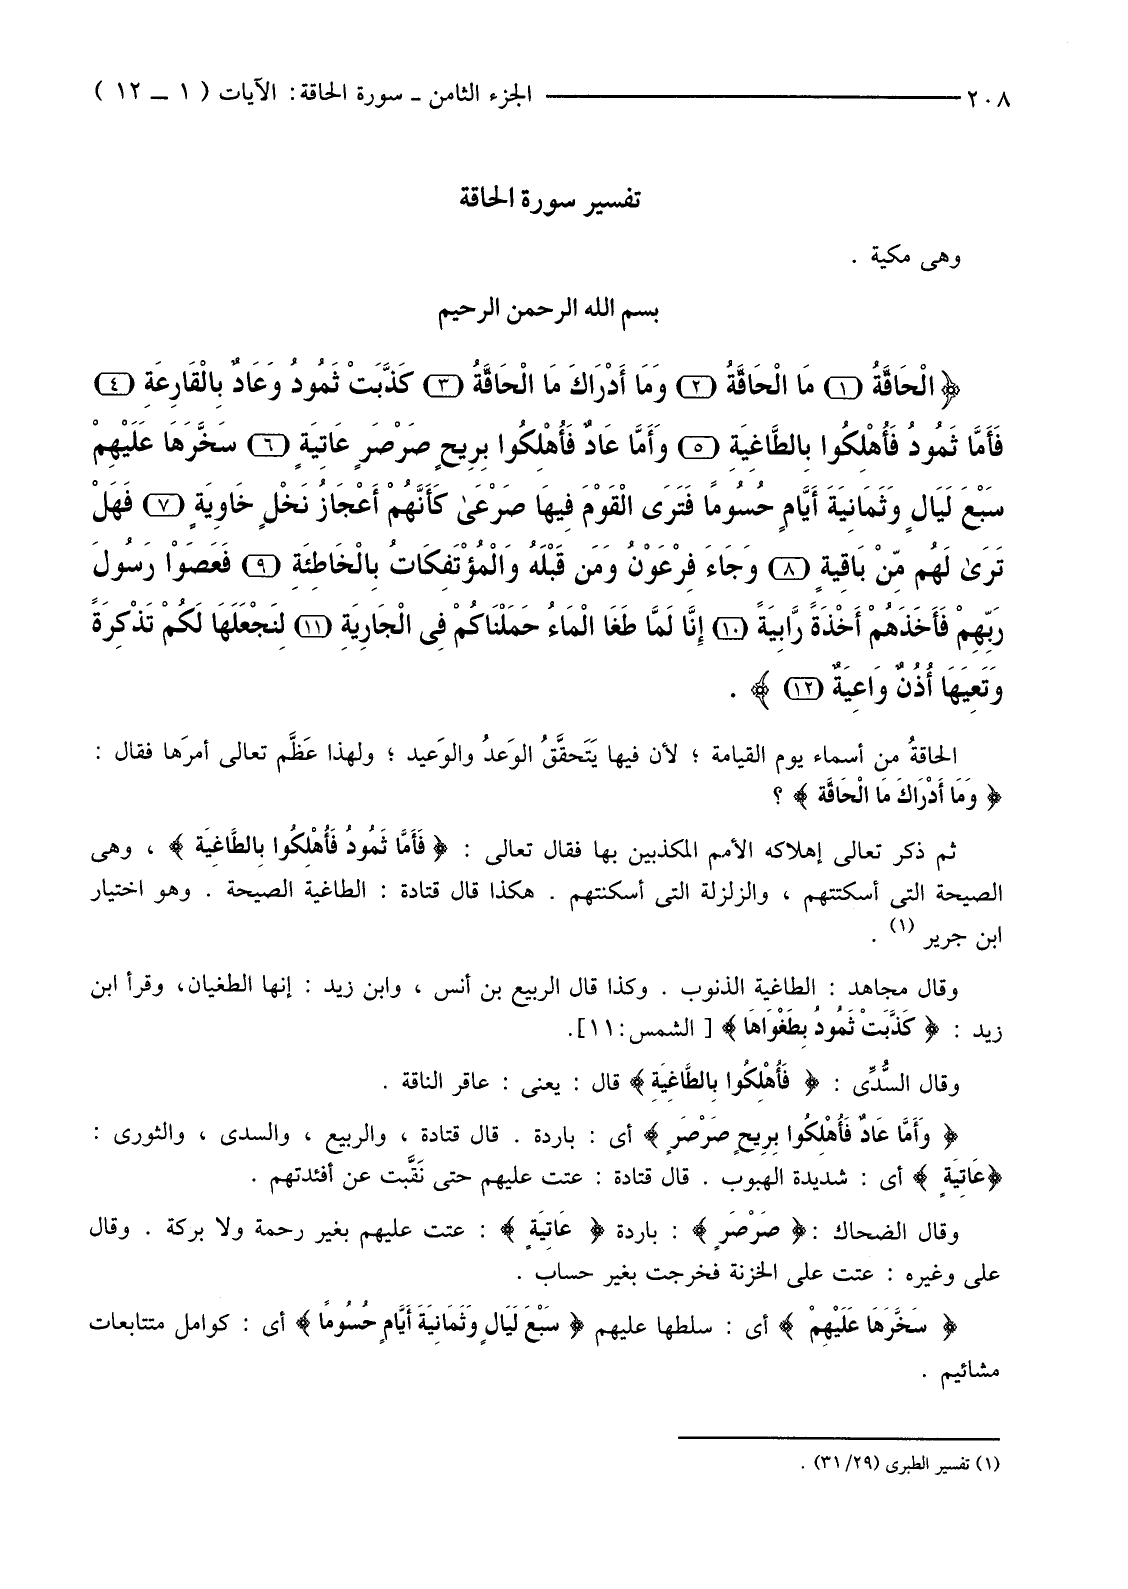 ٢٠٨ ــــــــــ الجزء الثامن ـ سورة الحاقة: الآيات ( ١ ـ ١٢ )
تفسير سورة الحاقة
وهى مكية .
بسم الله الرحمن الرحيم
﴿ الْحَاقَّةُ (١) مَا الْحَاقَّةُ (٢) وَمَا أَدْرَاكَ مَا الْحَاقَّةُ (٣) كَذَّبَتْ ثَمُودُ وَعَادٌ بِالْقَارِعَةِ (٤)
فَأَمَّا ثَمُودُ فَأُهْلِكُوا بِالطَّاغِيَةِ (٥) وَأَمَّا عَادٌ فَأُهْلِكُوا بِرِيحٍ صَرْصَرٍ عَاتِيَةٍ (٦) سَخَّرَهَا عَلَيْهِمْ
سَبْعَ لَيَالٍ وَثَمَانِيَةَ أَيَّامٍ حُسُومًا فَتَرَى الْقَوْمَ فِيهَا صَرْعَىٰ كَأَنَّهُمْ أَعْجَازُ نَخْلٍ خَاوِيَةٍ (٧) فَهَلْ
تَرَىٰ لَهُم مِّنْ بَاقِيَةٍ (٨) وَجَاءَ فِرْعَوْنُ وَمَن قَبْلَهُ وَالْمُؤْتَفِكَاتُ بِالْخَاطِئَةِ (٩) فَعَصَوْا رَسُولَ
رَبِّهِمْ فَأَخَذَهُمْ أَخْذَةً رَّابِيَةً (١٠) إِنَّا لَمَّا طَغَا الْمَاءُ حَمَلْنَاكُمْ فِى الْجَارِيَةِ (١١) لِنَجْعَلَهَا لَكُمْ تَذْكِرَةً
وَتَعِيَهَا أُذُنٌ وَاعِيَةٌ (١٢) ﴾ .
الحاقةُ من أسماء يوم القيامة ؛ لأن فيها يَتَحقَّقُ الوَعدُ والوَعيد ؛ ولهذا عَظَّم تعالى أمرَها فقال :
﴿ وَمَا أَدْرَاكَ مَا الْحَاقَّة ﴾ ؟
ثم ذكر تعالى إهلاكه الأمم المكذبين بها فقال تعالى : ﴿ فَأَمَّا ثَمُودُ فَأُهْلِكُوا بِالطَّاغِيَة ﴾ ، وهى
الصيحة التى أسكتتهم ، والزلزلة التى أسكنتهم . هكذا قال قتادة : الطاغية الصيحة . وهو اختيار
ابن جرير (١) .
وقال مجاهد : الطاغية الذنوب . وكذا قال الربيع بن أنس ، وابن زيد : إنها الطغيان، وقرأ ابن
زيد : ﴿ كَذَّبَتْ ثَمُودُ بِطَغْوَاهَا ﴾ [ الشمس:١١].
وقال السُّدِّى : ﴿ فَأُهْلِكُوا بِالطَّاغِيَةِ ﴾ قال : يعنى : عاقر الناقة .
﴿ وَأَمَّا عَادٌ فَأُهْلِكُوا بِرِيحٍ صَرْصَرٍ ﴾ أى : باردة . قال قتادة ، والربيع ، والسدى ، والثورى :
﴿عَاتِيَةٍ ﴾ أى : شديدة الهبوب . قال قتادة : عتت عليهم حتى نَقَّبت عن أفئدتهم .
وقال الضحاك :﴿ صَرْصَرٍ ﴾ : باردة ﴿ عَاتِيَةٍ ﴾ : عتت عليهم بغير رحمة ولا بركة . وقال
على وغيره : عتت على الخزنة فخرجت بغير حساب .
﴿ سَخَّرَهَا عَلَيْهِمْ ﴾ أى : سلطها عليهم ﴿ سَبْعَ لَيَالٍ وَثَمَانِيَةَ أَيَّامٍ حُسُومًا ﴾ أى : كوامل متتابعات
مشائيم .
(١) تفسير الطبرى (٣١/٢٩) .